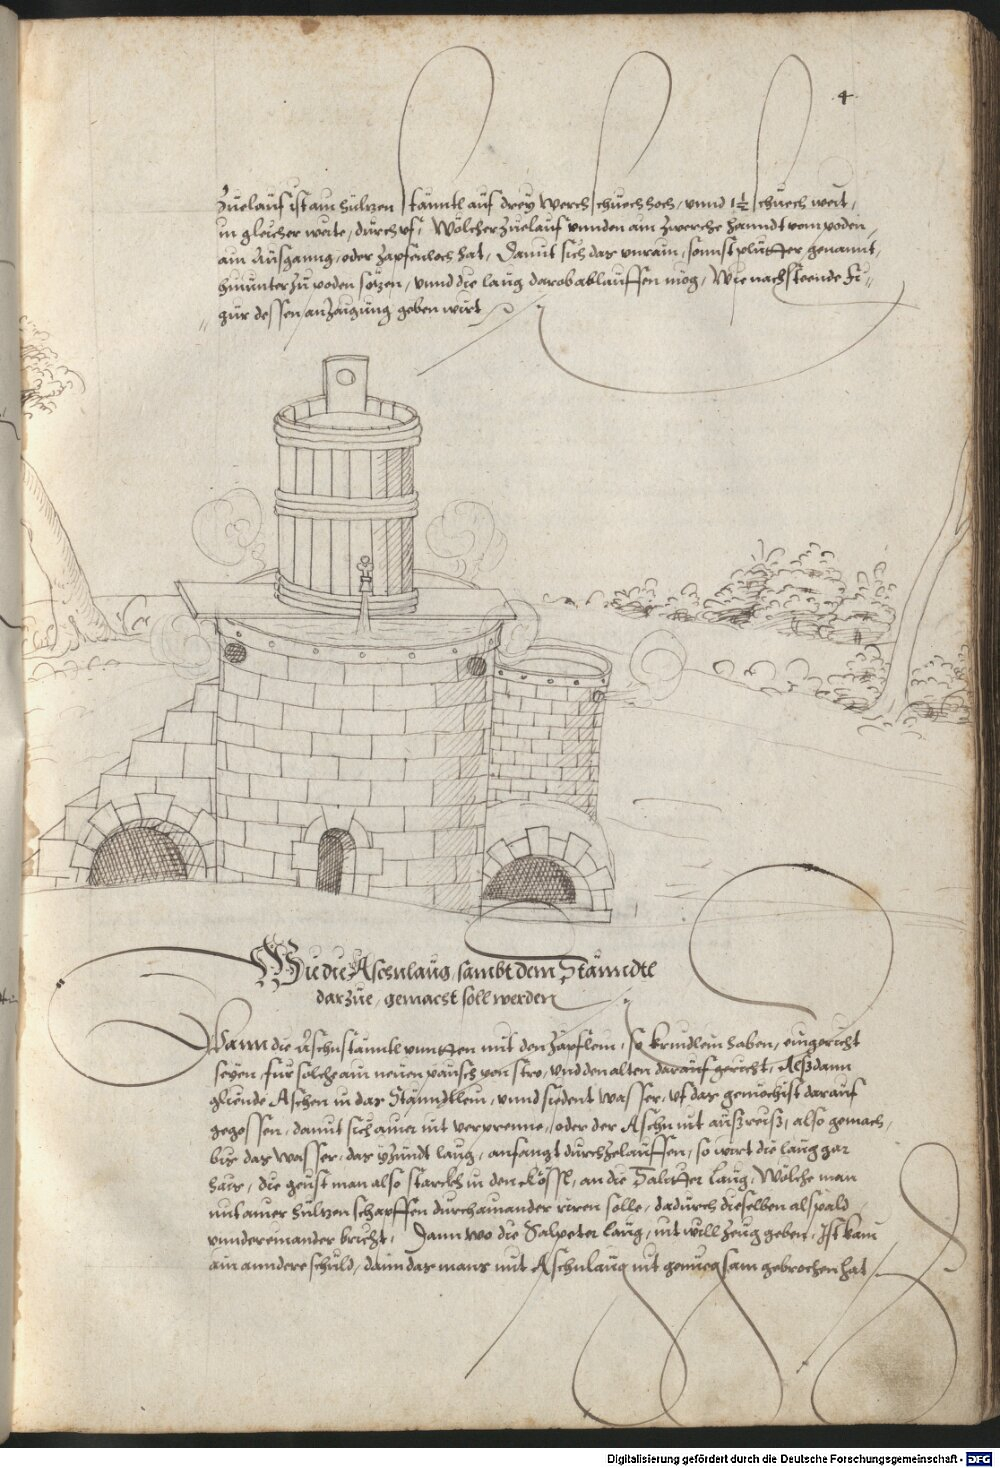 4
Zuelauf ist ain hültzen stänntl auf drey werchschuech hoch, unnd 1½ schuech weit,
in gleicher weite, durch uf, Wölcher Zuelauf unnden am Zwerche hanndt vom poden,
ain Ausganng, oder Zapfenloch hat, Damit sich das unrain, sonnst plutter genannt,
hinunter zu poden setzen, unnd die laug darob ablauffen mög, Wie nachsteende Fi„
„gur dessen anzaigung geben wirt
Wie die Aschnlaug, sambt dem Stänndtl
darzue, gemacht soll werden
Wann die Aschnstänntl unntten mit den Zäpflein, so krindlein haben, eingericht
seyen, für solche ain neuen pausch von stro, und den alten darauf gericht, Alßdann
gliende Aschen in das Stänndtlein, unnd siedent wasser, uf das gemechist darauf
gegossen, damit sich aines nit verprenne, oder der Aschn nit außreiß, also gemach,
bis das wasser, das yzundt laug, anfangt durchzelauffen, so wirt die laug gar
hais, die geust man also starckh in den Kössl, an die Saliter laug, Wölche man
mit ainer hültzen schapffen durchainander rüren solle, dadurch dieselben alspald
unndereinander bricht, Dann wo die Salpeter laug, nit will zeug geben, Ist kain
ain anndere schuld, dann das mans mit Aschnlaug nit genuegsam gebrochen hat
Digitalisierung gefördert durch die Deutsche Forschungsgemeinschaft - DFG